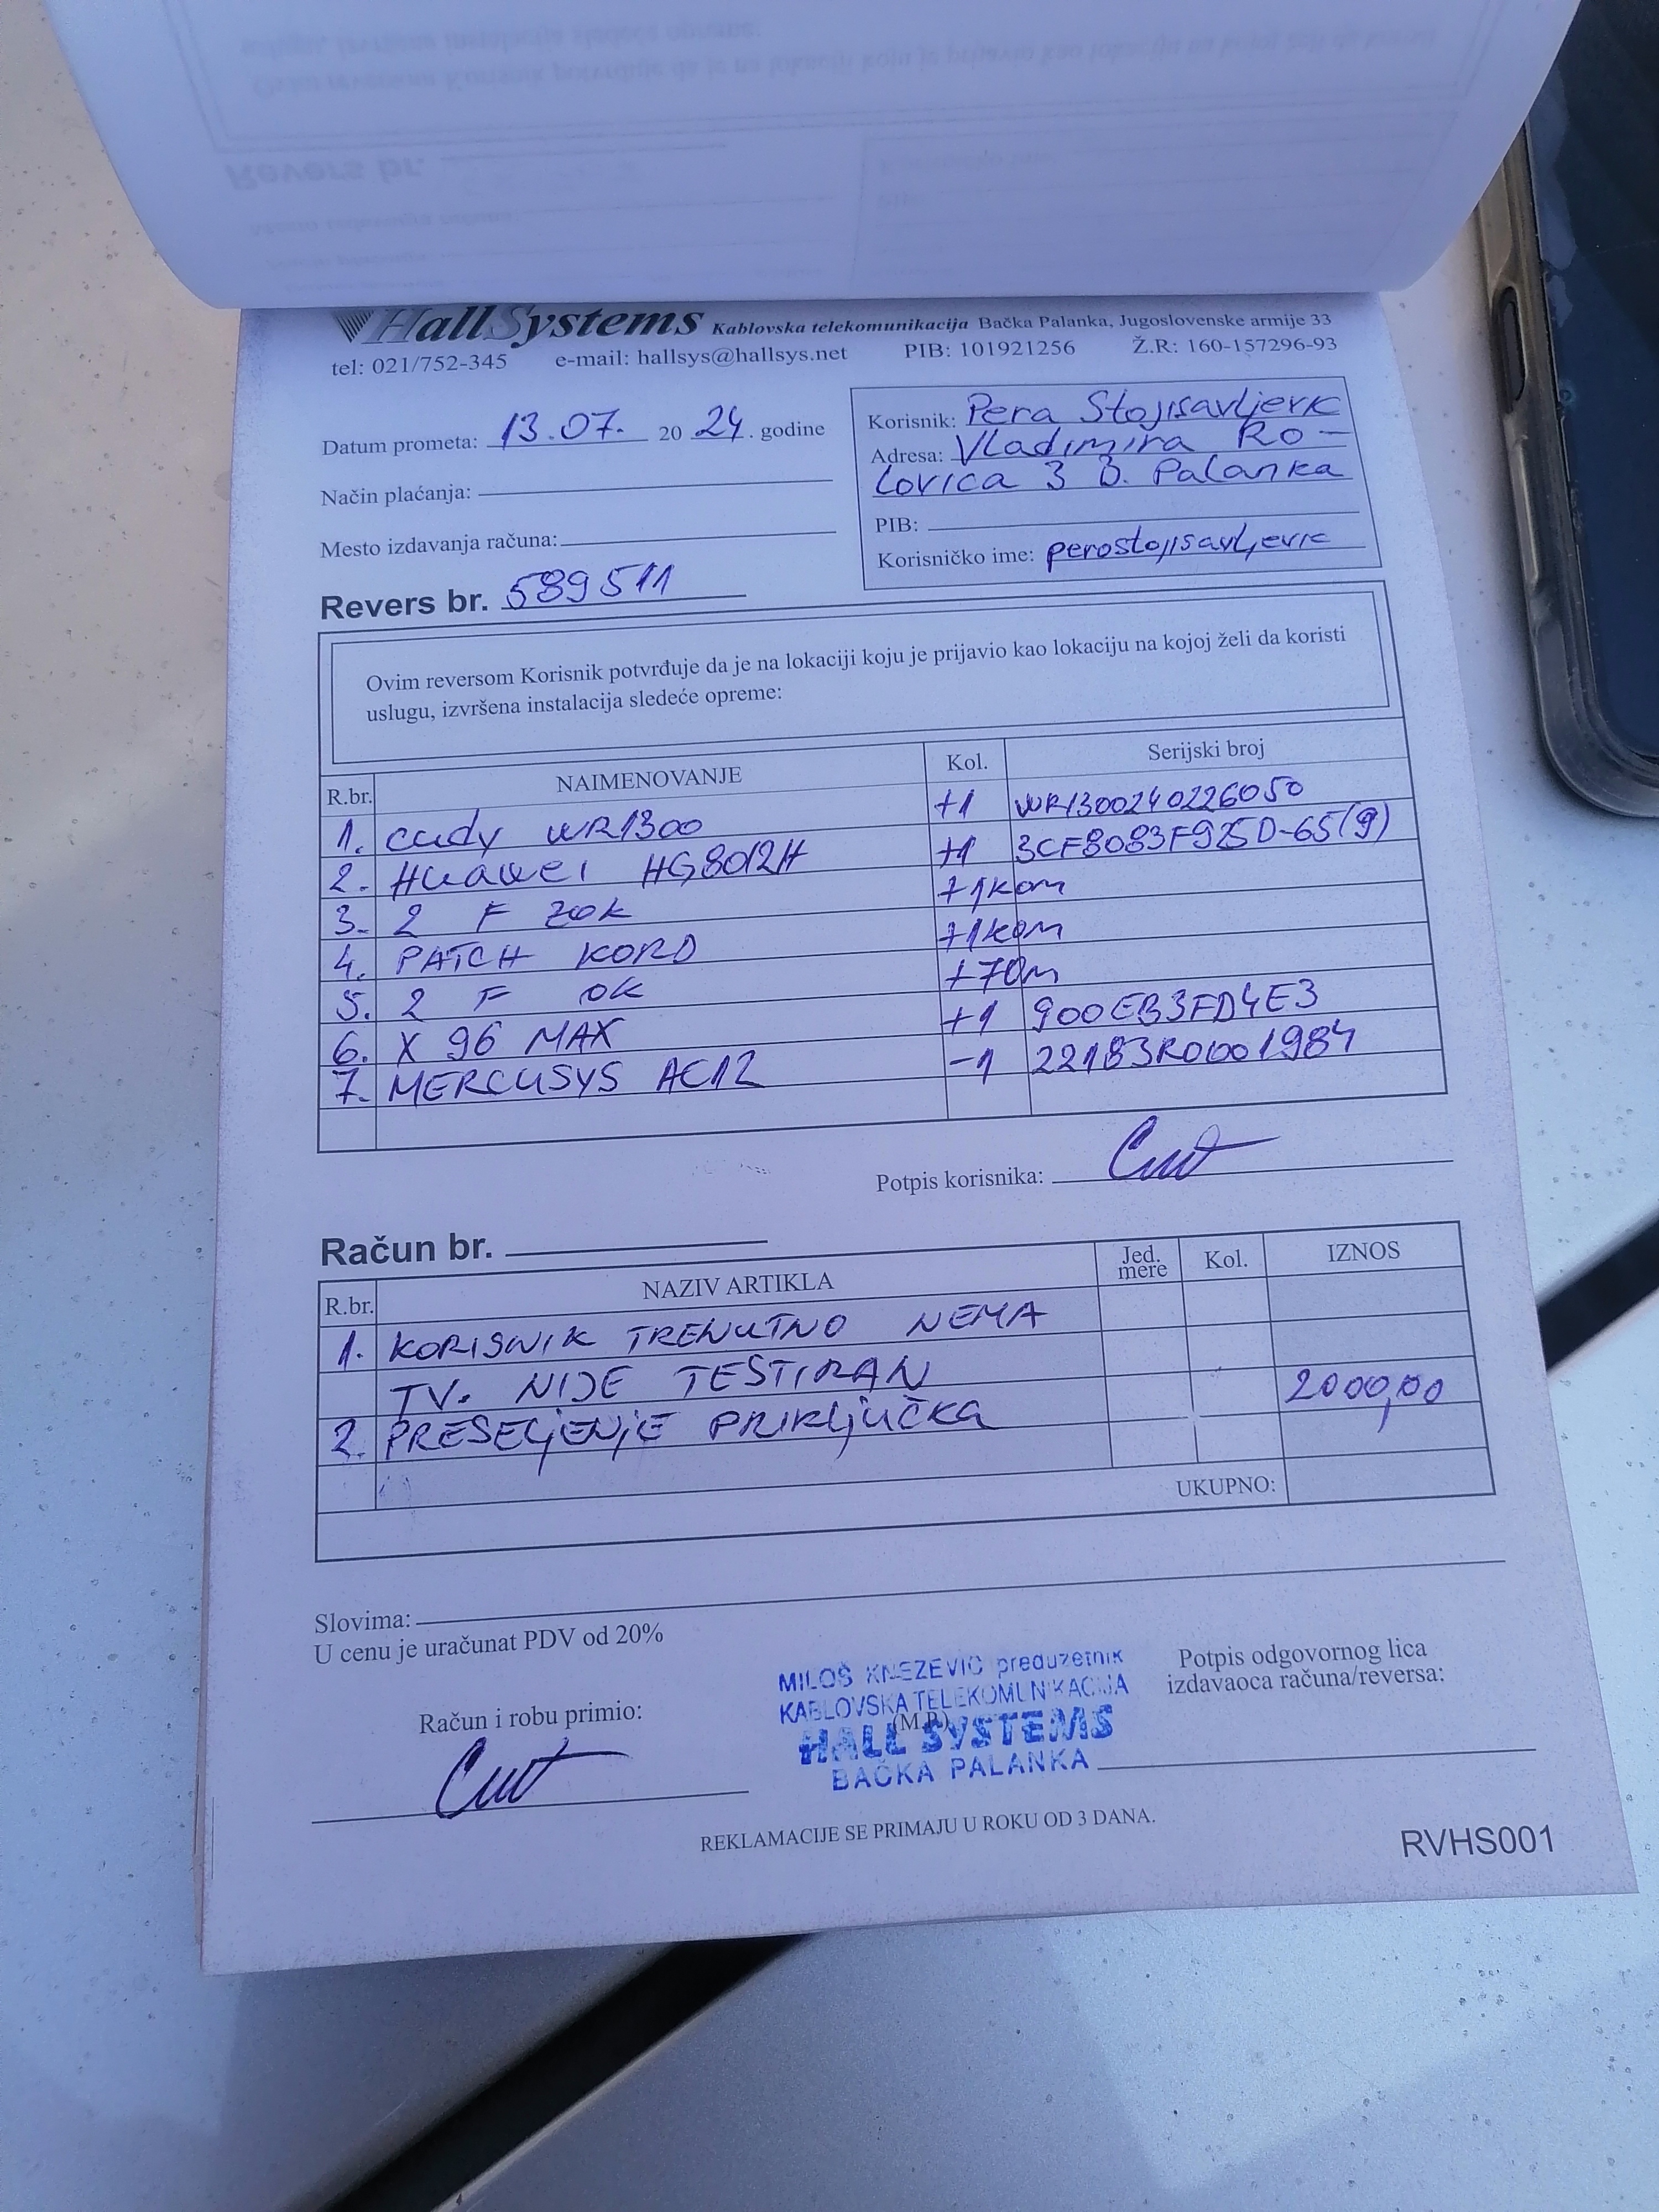 HallSystems Kablovska telekomunikacija Bačka Palanka, Jugoslovenske armije 33
tel: 021/752-345 e-mail: hallsys@hallsys.net PIB: 101921256 Ž.R: 160-157296-93
Datum prometa: 13.07. 20 24. godine
Način plaćanja:
Mesto izdavanja računa:
Korisnik: Pera Stojisavljevic
Adresa: Vladimira Ro-
lovica 3 B. Palanka
PIB:
Korisničko ime: perostojisavljevic
Revers br. 589511
Ovim reversom Korisnik potvrđuje da je na lokaciji koju je prijavio kao lokaciju na kojoj želi da koristi
uslugu, izvršena instalacija sledeće opreme:
R.br. NAIMENOVANJE Kol. Serijski broj
1. cudy WR1300 +1 WR1300240226050
2. Huawei HG8012H +1 3CF8083F925D-65(9)
3. 2 F ZOK +1kom
4. PATCH KORD +1kom
5. 2 F OK +70m
6. X 96 MAX +1 900EB3FD4E3
7. MERCUSYS AC12 -1 22183R0001984
Potpis korisnika:
Račun br.
R.br. NAZIV ARTIKLA Jed. mere Kol. IZNOS
1. KORISNIK TRENUTNO NEMA
TV. NIJE TESTIRAN
2. PRESELJENJE PRIKLJUČKA 2000,00
UKUPNO:
Slovima:
U cenu je uračunat PDV od 20%
Račun i robu primio:
MILOŠ KNEZEVIC preduzetnik
KABLOVSKA TELEKOMUNIKACIJA
(M.P.)
HALL SYSTEMS
BAČKA PALANKA
Potpis odgovornog lica
izdavaoca računa/reversa:
REKLAMACIJE SE PRIMAJU U ROKU OD 3 DANA.
RVHS001